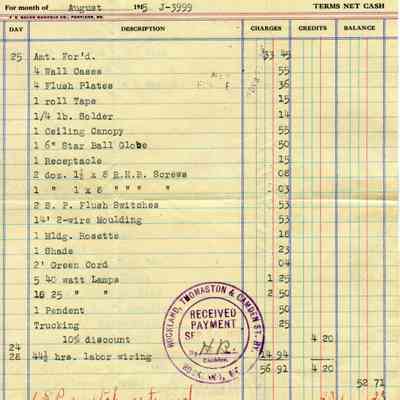 For month of August 1915 J-3999 TERMS NET CASH
DAY DESCRIPTION CHARGES CREDITS BALANCE
25 Amt. For'd. 33 45
4 Wall Cases 55
4 Flush Plates 36
1 roll Tape 15
1/4 lb. Solder 14
1 Ceiling Canopy 55
1 6" Star Ball Globe 50
1 Receptacle 15
2 doz. 1½ x 8 R.H.B. Screws 08
1 " 1 x 8 " " " " 03
2 S. P. Flush Switches 53
14' 2-wire Moulding 53
1 Mldg. Rosette 18
1 Shade 23
2' Green Cord 04
5 40 watt Lamps 1 25
10 25 " " 2 50
1 Pendent 50
Trucking 25
10% discount 4 20
24
26 44½ hrs. labor wiring 14 94
56 91 4 20
52 71
ROCKLAND, THOMASTON & CAMDEN ST. RY.
RECEIVED
PAYMENT
By H.R.
ROCKLAND, ME.